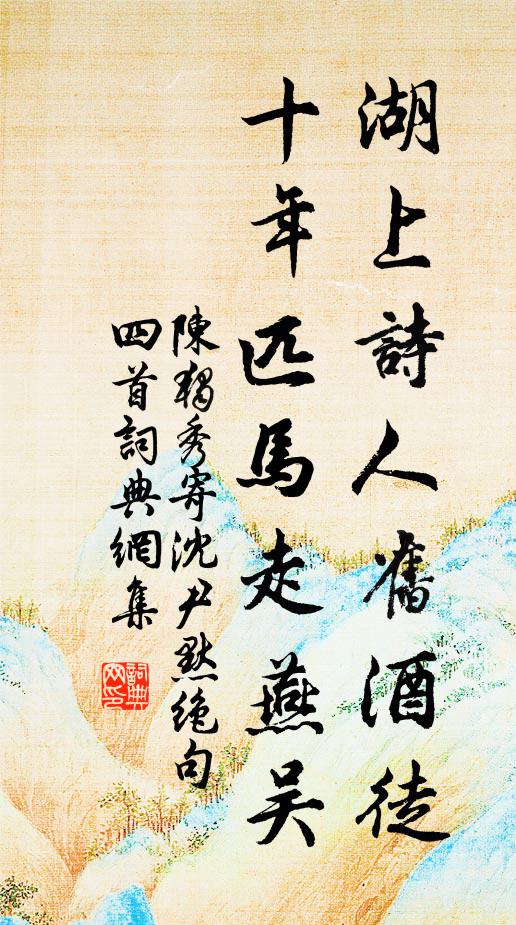 湖上詩人舊酒徒
十年匹馬走燕吴
陳獨秀寄沈尹默絶句
四首詞典網集
詞典
网印